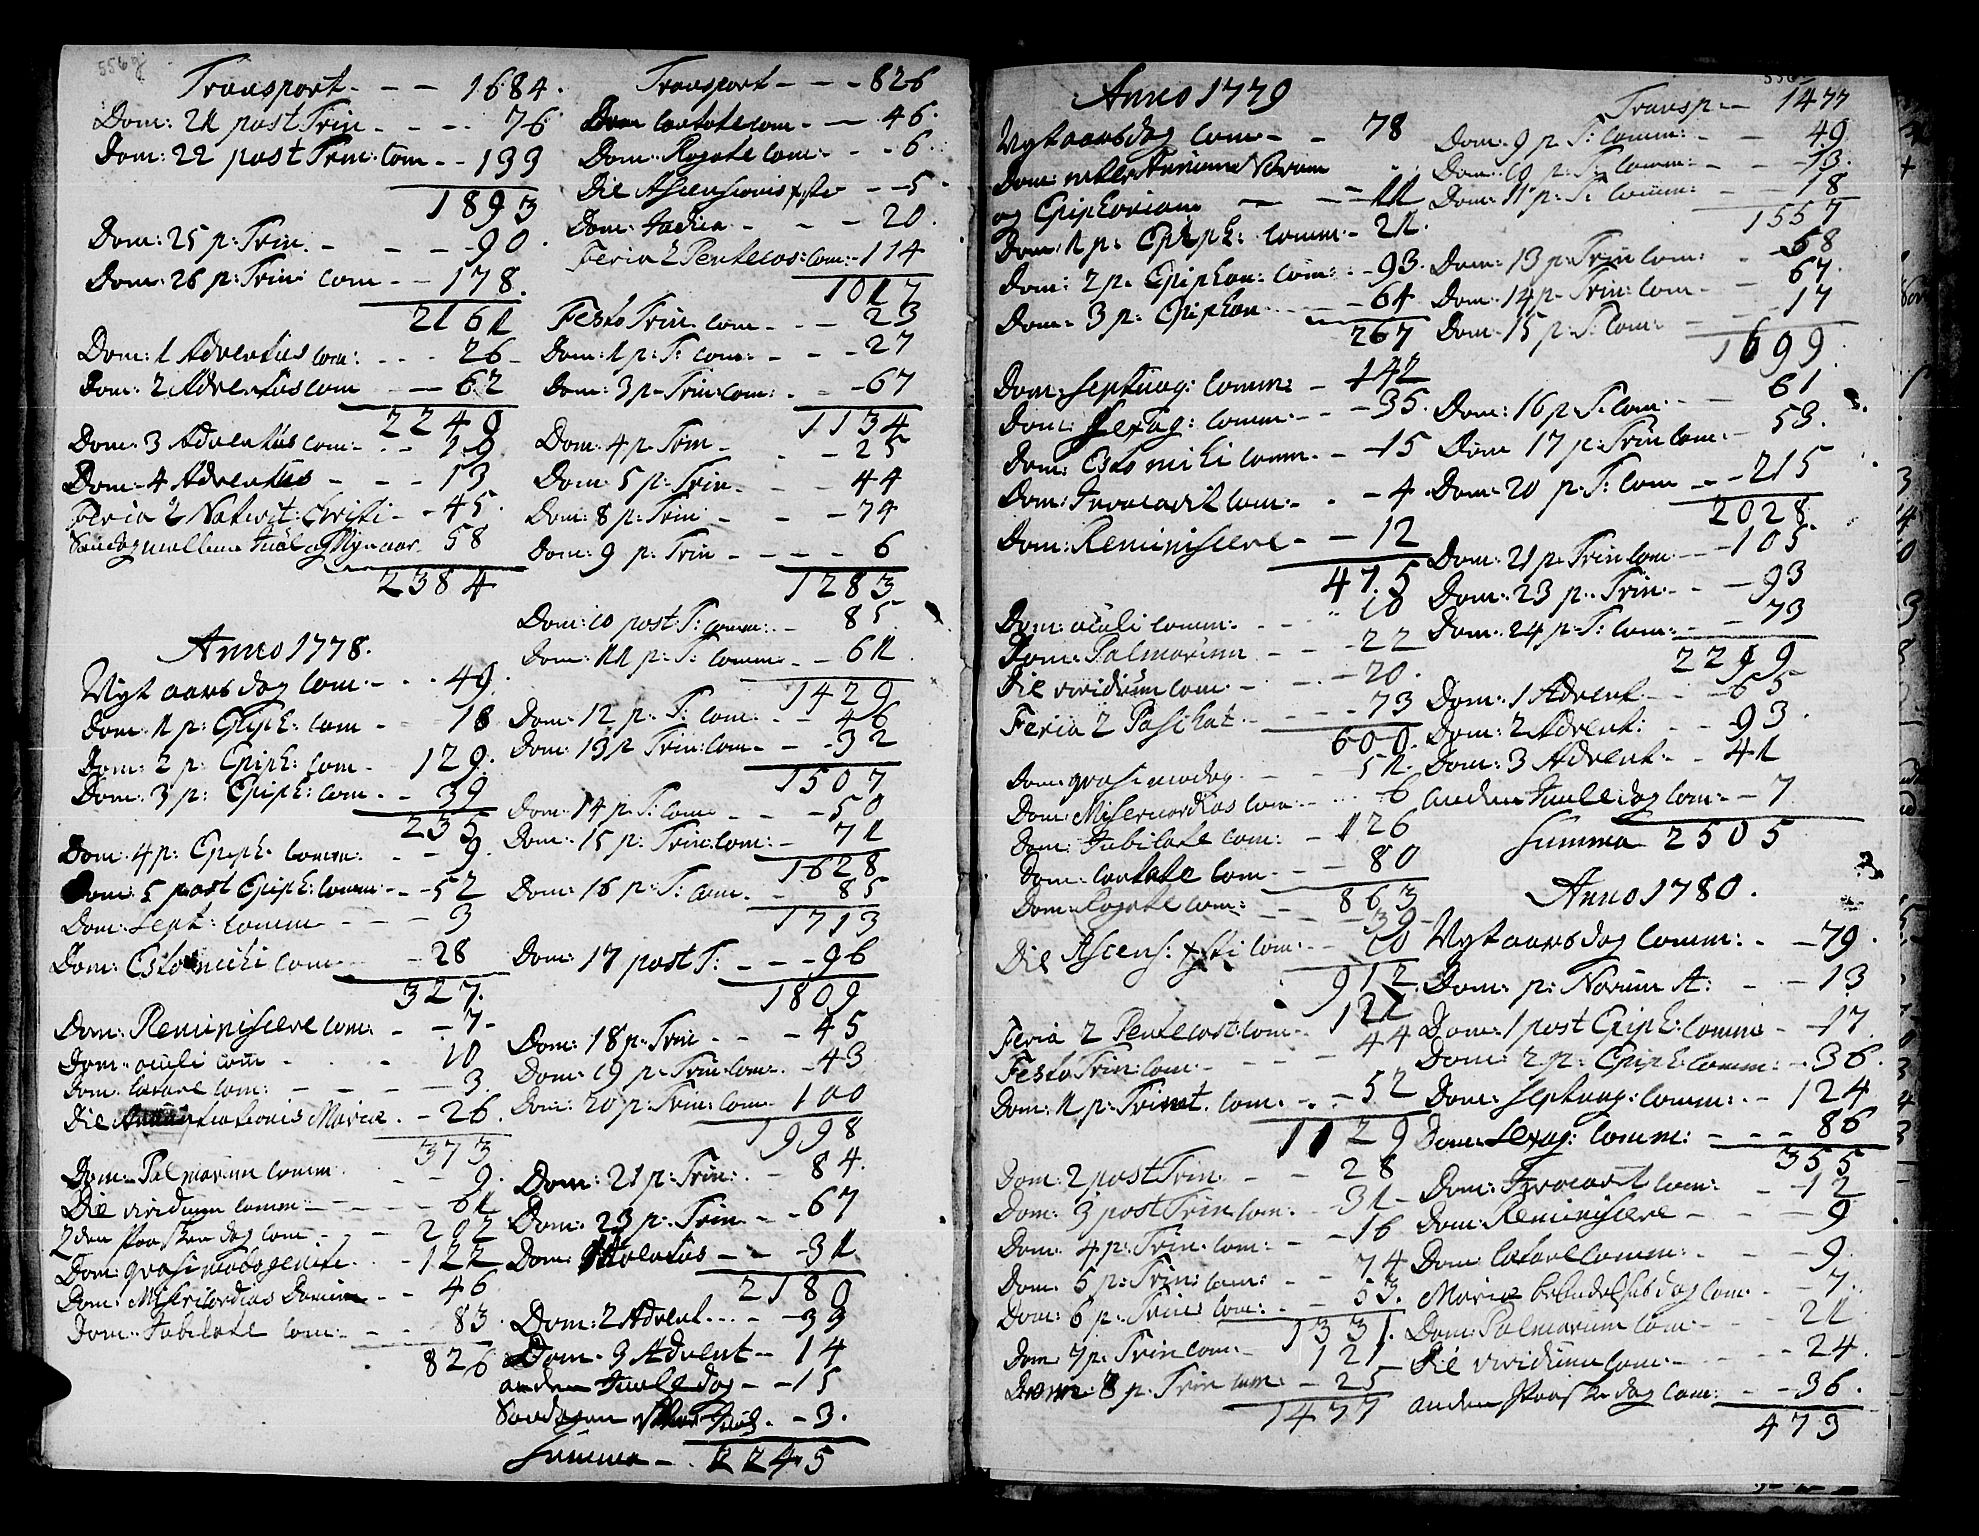 556g
Transport - - - 1684.
Dom: 21 post Trin - - - - 76
Dom: 22 post Trin: Com - - 133
1893
Dom: 25 p: Trin. - - - - 90.
Dom: 26 p: Trin: com - - 178.
2161
Dom: 1 Adventus com: - - - 26 -
Dom: 2 Adventus com - - 62
2249
Dom: 3 Adventus com: - - 19
Dom: 4 Adventus - - - 13
Feria 2 Nativit: Christi - - 45.
Søndag mellem Juul og Nyeaar. 58
2384
Anno 1778.
Nyt aarsdag Com: - - - 49.
Dom: 1 p: Epiph: Com - - 18
Dom: 2 p: Epiph: Com - 129.
Dom: 3 p: Epiph: Com - - 39
235
Dom: 4 p: Epiph: comm: - - 9.
Dom: 5 post Epiph: Comm: - - 52
Dom: Sept: comm - - - 3
Dom: Esto mihi com - - 28
327.
Dom: Reminiscere com. - - 7 -
Dom: oculi com - - - 10
Dom: Lætare Com: - - - - 3.
Die Annuntiationis Mariæ. - 26.
373
Dom: Palmarum comm - - - 9.
Die viridium comm - - - - 61
2den Paaskedag com - - - 202
Dom: qvasimodogeniti - - 122
Dom: Misericordias Domini - - 46
Dom: Jubilate Com: - - - 83
826
Transport - - - 826
Dom Cantate Com - - - 46.
Dom: Rogate Com: - - - 6.
Die Ascensionis Xsti - - 5.
Dom: Exaudi - - - 20.
Feria 2 Pentecos: Com: - 114
1017
Festo Trin. com - - - 23
Dom: 1 p: T: com: - - - 27
Dom: 3 p. Trin: Com: . - - 67
1134
Dom: 4 p. Trin - - - 25
Dom: 5 p: Trin - - - 44
Dom: 8 p: Trin - - - 74
Dom: 9 p: Trin - - - - 6
1283
Dom: 10 post: T: Comm: - - 85.
Dom: 11 p: T: comm - - 61.
1429
Dom: 12 p: T: com: - - 46
Dom: 13 p Trin: Com - - - 32
1507
Dom: 14 p: T: Com - - - 50
Dom: 15 p: Trin: Com: - 71
1628
Dom: 16 p: T: Com. - - 85
1713
Dom: 17 post T: - - - 96
1809
Dom: 18 p: Trin - - - 45
Dom: 19 p: Trin: Com - - 43
Dom: 20 p: Trin: Com - 100
1998
Dom: 21 p: Trin: - - 84.
Dom: 23 p: Trin - - - 67
Dom: 1 Adventus - - - 31
2180
Dom: 2 Advent . . . - - 39
Dom: 3 Advent - 14
anden Juuledag - - 15
Søndagen efter Juul . - 3.
Summa - . 2245
Anno 1779
Nyt aarsdag Com - - 78
Dom: inter Annum Novum
og Epiphaniam - - - 11
Dom: 1 p: Epiph: Comm - 21.
Dom: 2 p. Epiphan: Com: - - 93.
Dom: 3 p: Epiphan - - - 64
267
Dom: Septuag: Comm: - 142
Dom: Sexag: comm: - - 35.
Dom: Esto mihi comm - - 15
Dom: Invocavit com: - - - 4
Dom: Reminiscere - - 12
475
Dom: oculi comm: - - - 10
Dom: Palmarum - - - 22
Die viridium com: - - - 20.
Feria 2 Paschat. - - - 73
600.
Dom: qvasimodog. - - - 51.
Dom: Misericordias Com - - - 6
Dom: Jubilate com: - 126
Dom: Cantate Com - - - 80
863
Dom: Rogate Com: - - - 39
Die Ascens: Xsti Com: - - 10
912
Feria 2 Pentecost: Com - 122
Festo Trin: Com - - - - 44
Dom: 1 p: Trinit. Com: - - 52
1129
Dom: 2 post Trin. - - 28
Dom: 3 post Trin Com: - - 31 -
Dom: 4 p: Trin: Com: - - 16
Dom: 5 p: Trin: Com: - - 74
Dom: 6 p: Trin: Com: - - 53.
1331.
Dom: 7 p: Trin Com: - 121
Dom: 8 p: Trin Com: - - 25
1477
Transp - - 1477
Dom: 9 p. T: Comm: - - 49
Dom: 10 p: T: Comm: - - - 13.
Dom: 11 p: T: Comm: - - 18
1557
Dom: 13 p: Trin com: - 58
Dom: 14 p: Trin: Com - - 67.
Dom: 15 p: T: Com: - - 17
1699
Dom: 16 p T: Com: - - - 61
Dom: 17 p: Trin Com: - 53.
Dom: 20 p: T: Com - - - 215
2028.
Dom: 21 p: Trin: Com: - - 105
Dom: 23 p: Trin: - - - 93
Dom: 24 p: T: Com: - - - 73
2299
Dom: 1 Advent: - - - 65
Dom: 2 Advent: - - - 93.
Dom: 3 Advent: - - 41
anden Juuledag Com: - - 7
Summa 2505
Anno 1780.
Nyt aarsdag Comm: - - 79.
Dom: p: Novum A: - - 13
Dom: 1 post Epiph: Comm - - 17
Dom: 2 p: Epiph: Comm: - - 36.
Dom: Septuag: Comm: - - 124
Dom: Sexag: Comm: - - - 86
355
Dom: Invocavit Com: - - 12
Dom: Reminiscere - - - 9
Dom: Lætare Comm: - - - 9.
Mariæ bebudelses dag Com - - - 7.
Dom: Palmarum Com: - - - 21
Die viridium Com: - - - - 24.
anden Paaskedag Com: - - - 36.
473